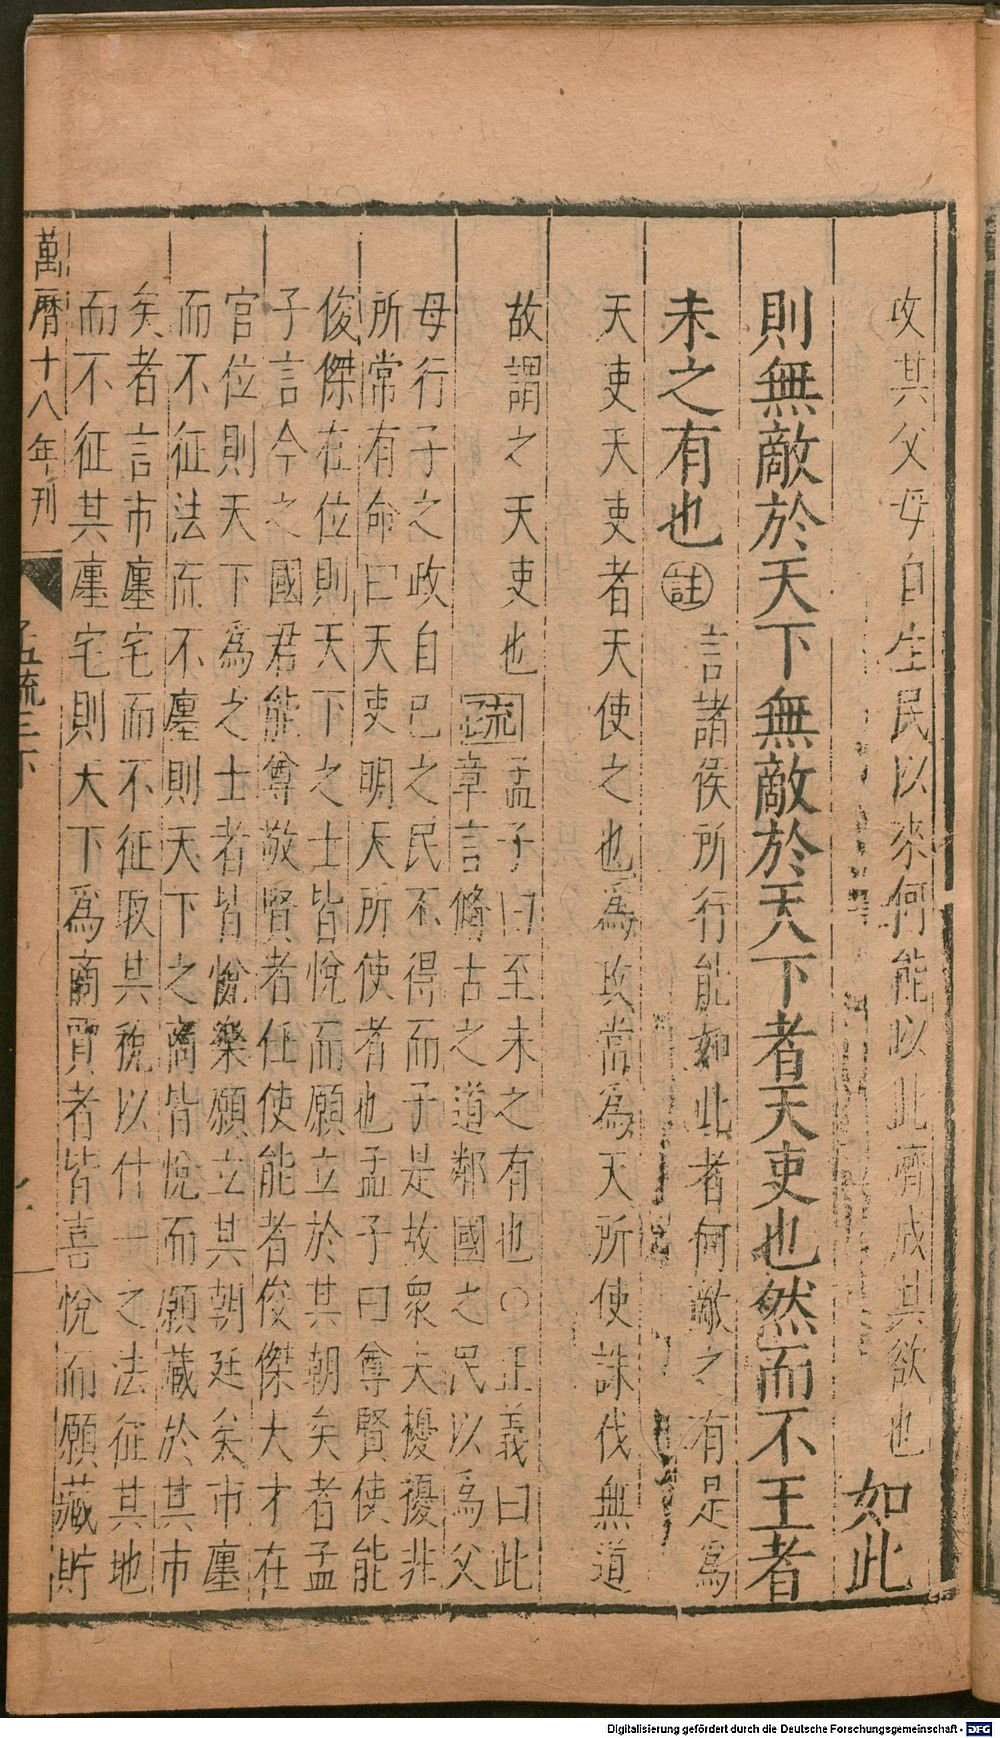 攻其父母自生民以來何能以此濟成其欲也如此
則無敵於天下無敵於天下者天吏也然而不王者
未之有也註言諸侯所行能如此者何敵之有是爲
天吏天吏者天使之也爲政當爲天所使誅伐無道
故謂之天吏也疏孟子曰至未之有也○正義曰此
章言脩古之道鄰國之民以爲父
母行子之政自已之民不得而子是故衆夫擾擾非
所常有命曰天吏明天所使者也孟子曰尊賢使能
俊傑在位則天下之士皆悅而願立於其朝矣者孟
子言今之國君能尊敬賢者任使能者俊傑大才在
官位則天下爲之士者皆悅樂願立其朝廷矣市廛
而不征法而不廛則天下之商皆悅而願藏於其市
矣者言市廛宅而不征取其稅以什一之法征其地
而不征其廛宅則天下爲商賈者皆喜悅而願藏貯
萬曆十八年刊
孟疏三下
Digitalisierung gefördert durch die Deutsche Forschungsgemeinschaft - DFG